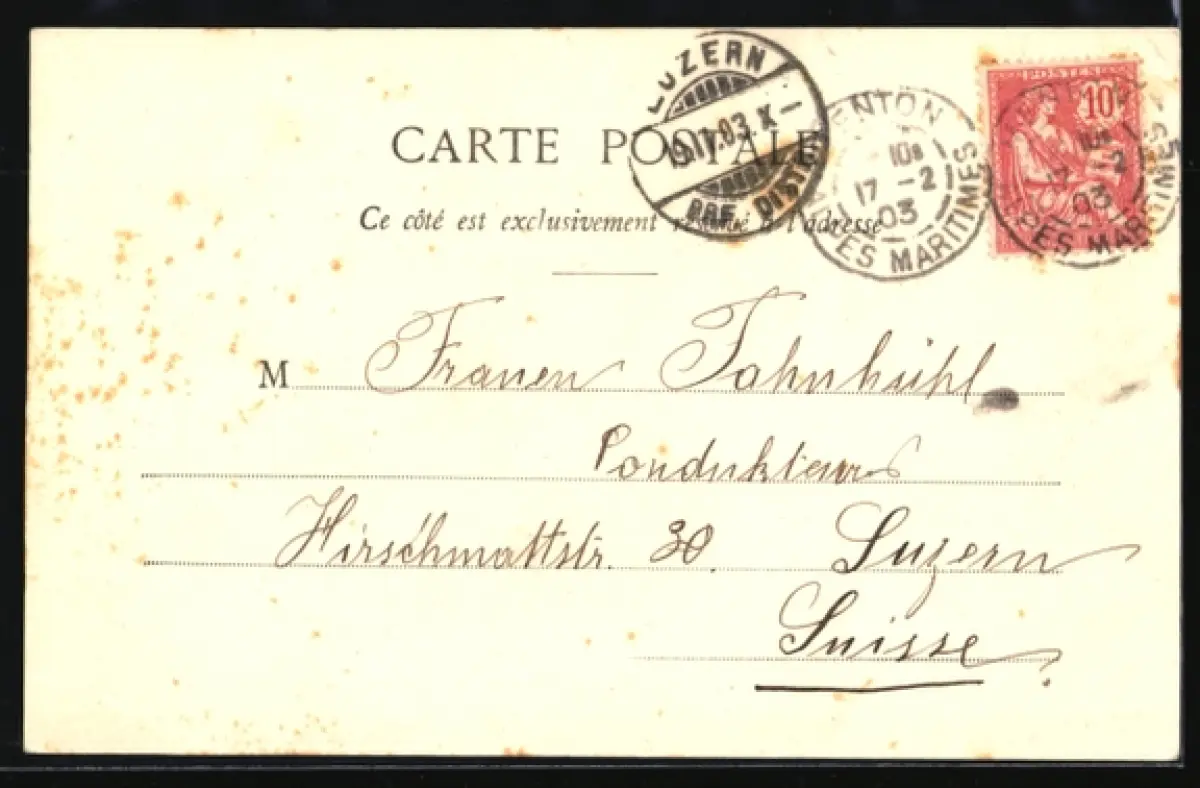 POSTES
10
LUZERN
19.II.03.X-
BRF. DISTR.
MENTON
10 17 -2
03
ALPES MARITIMES
17 -2
03
PES MARITIMES
CARTE POSTALE
Ce côté est exclusivement réservé à l'adresse
M Frauen Fahnbühl
Condukteurs
Hirschmattstr. 30. Luzern
Suisse